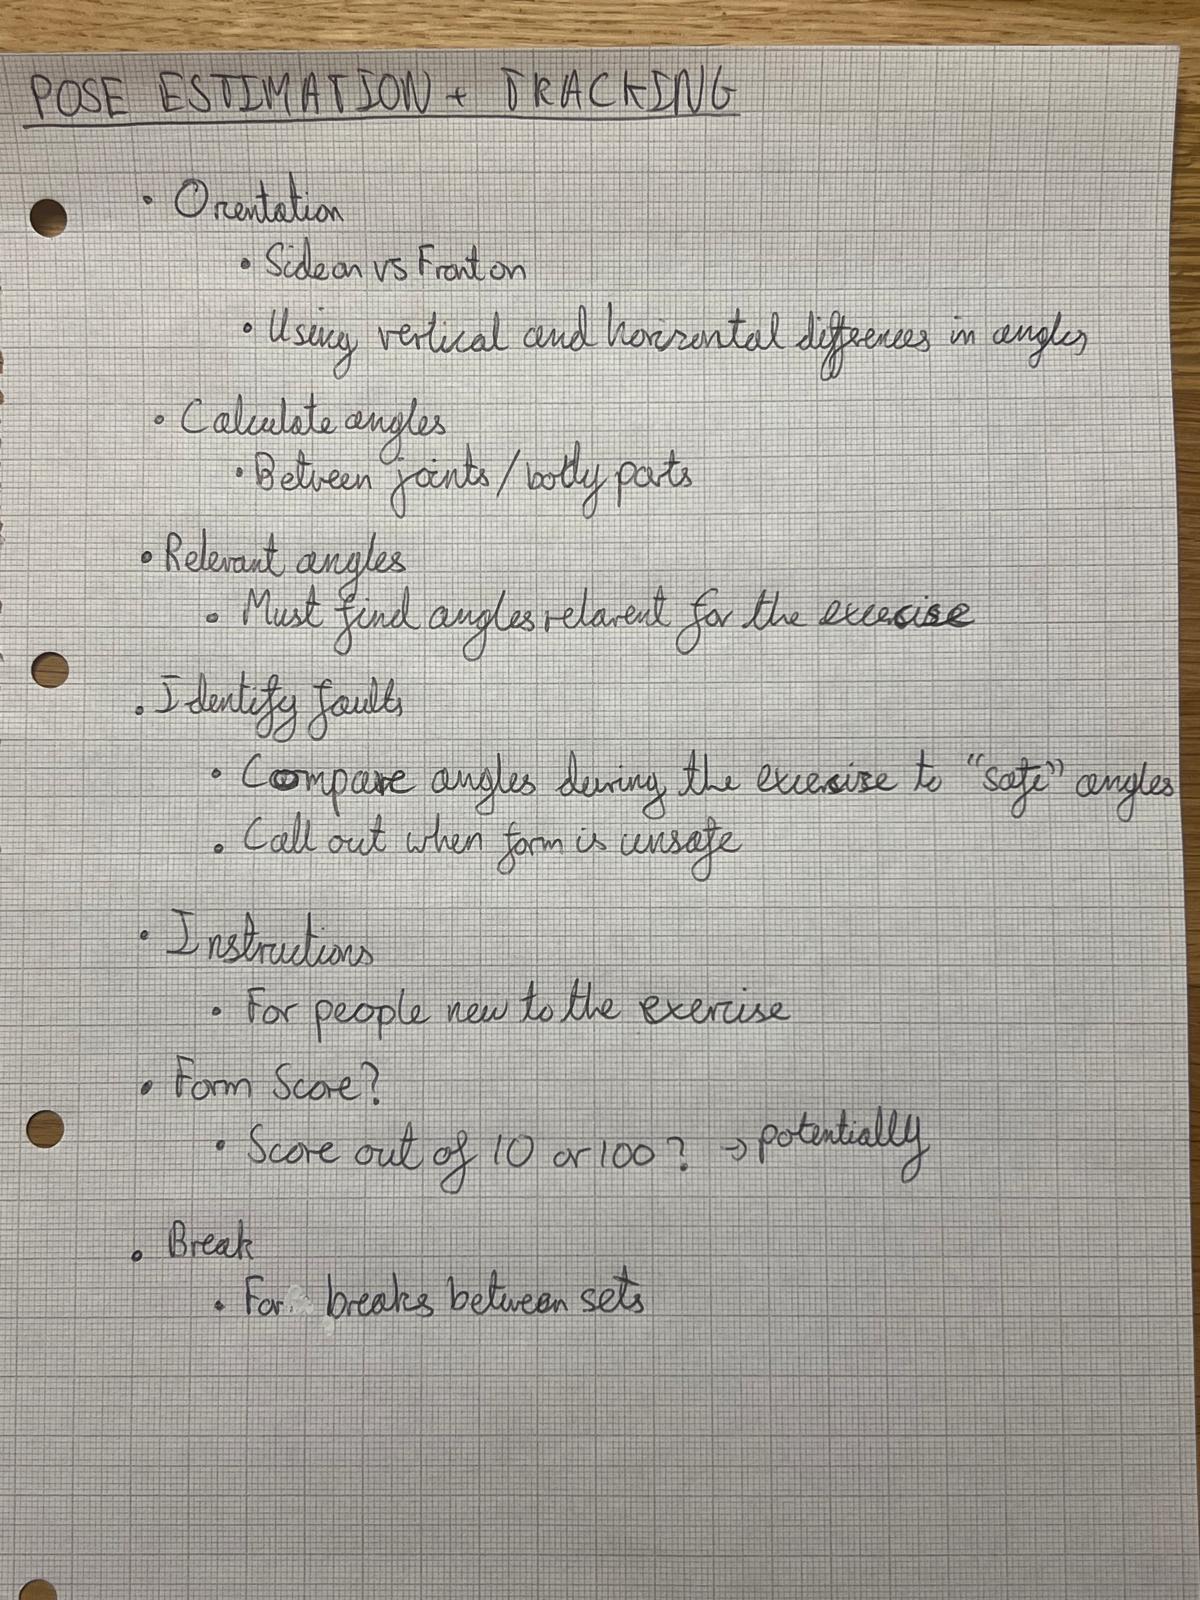 POSE ESTIMATION + TRACKING
• Orientation
• Side on vs Front on
• Using vertical and horizontal differences in angles
• Calculate angles
• Between joints / body parts
• Relevant angles
• Must find angles relavent for the excecise
• Identify faults
• Compare angles during the excercise to "safe" angles
• Call out when form is unsafe
• Instructions
• For people new to the exercise
• Form Score?
• Score out of 10 or 100? → potentially
• Break
• For breaks between sets